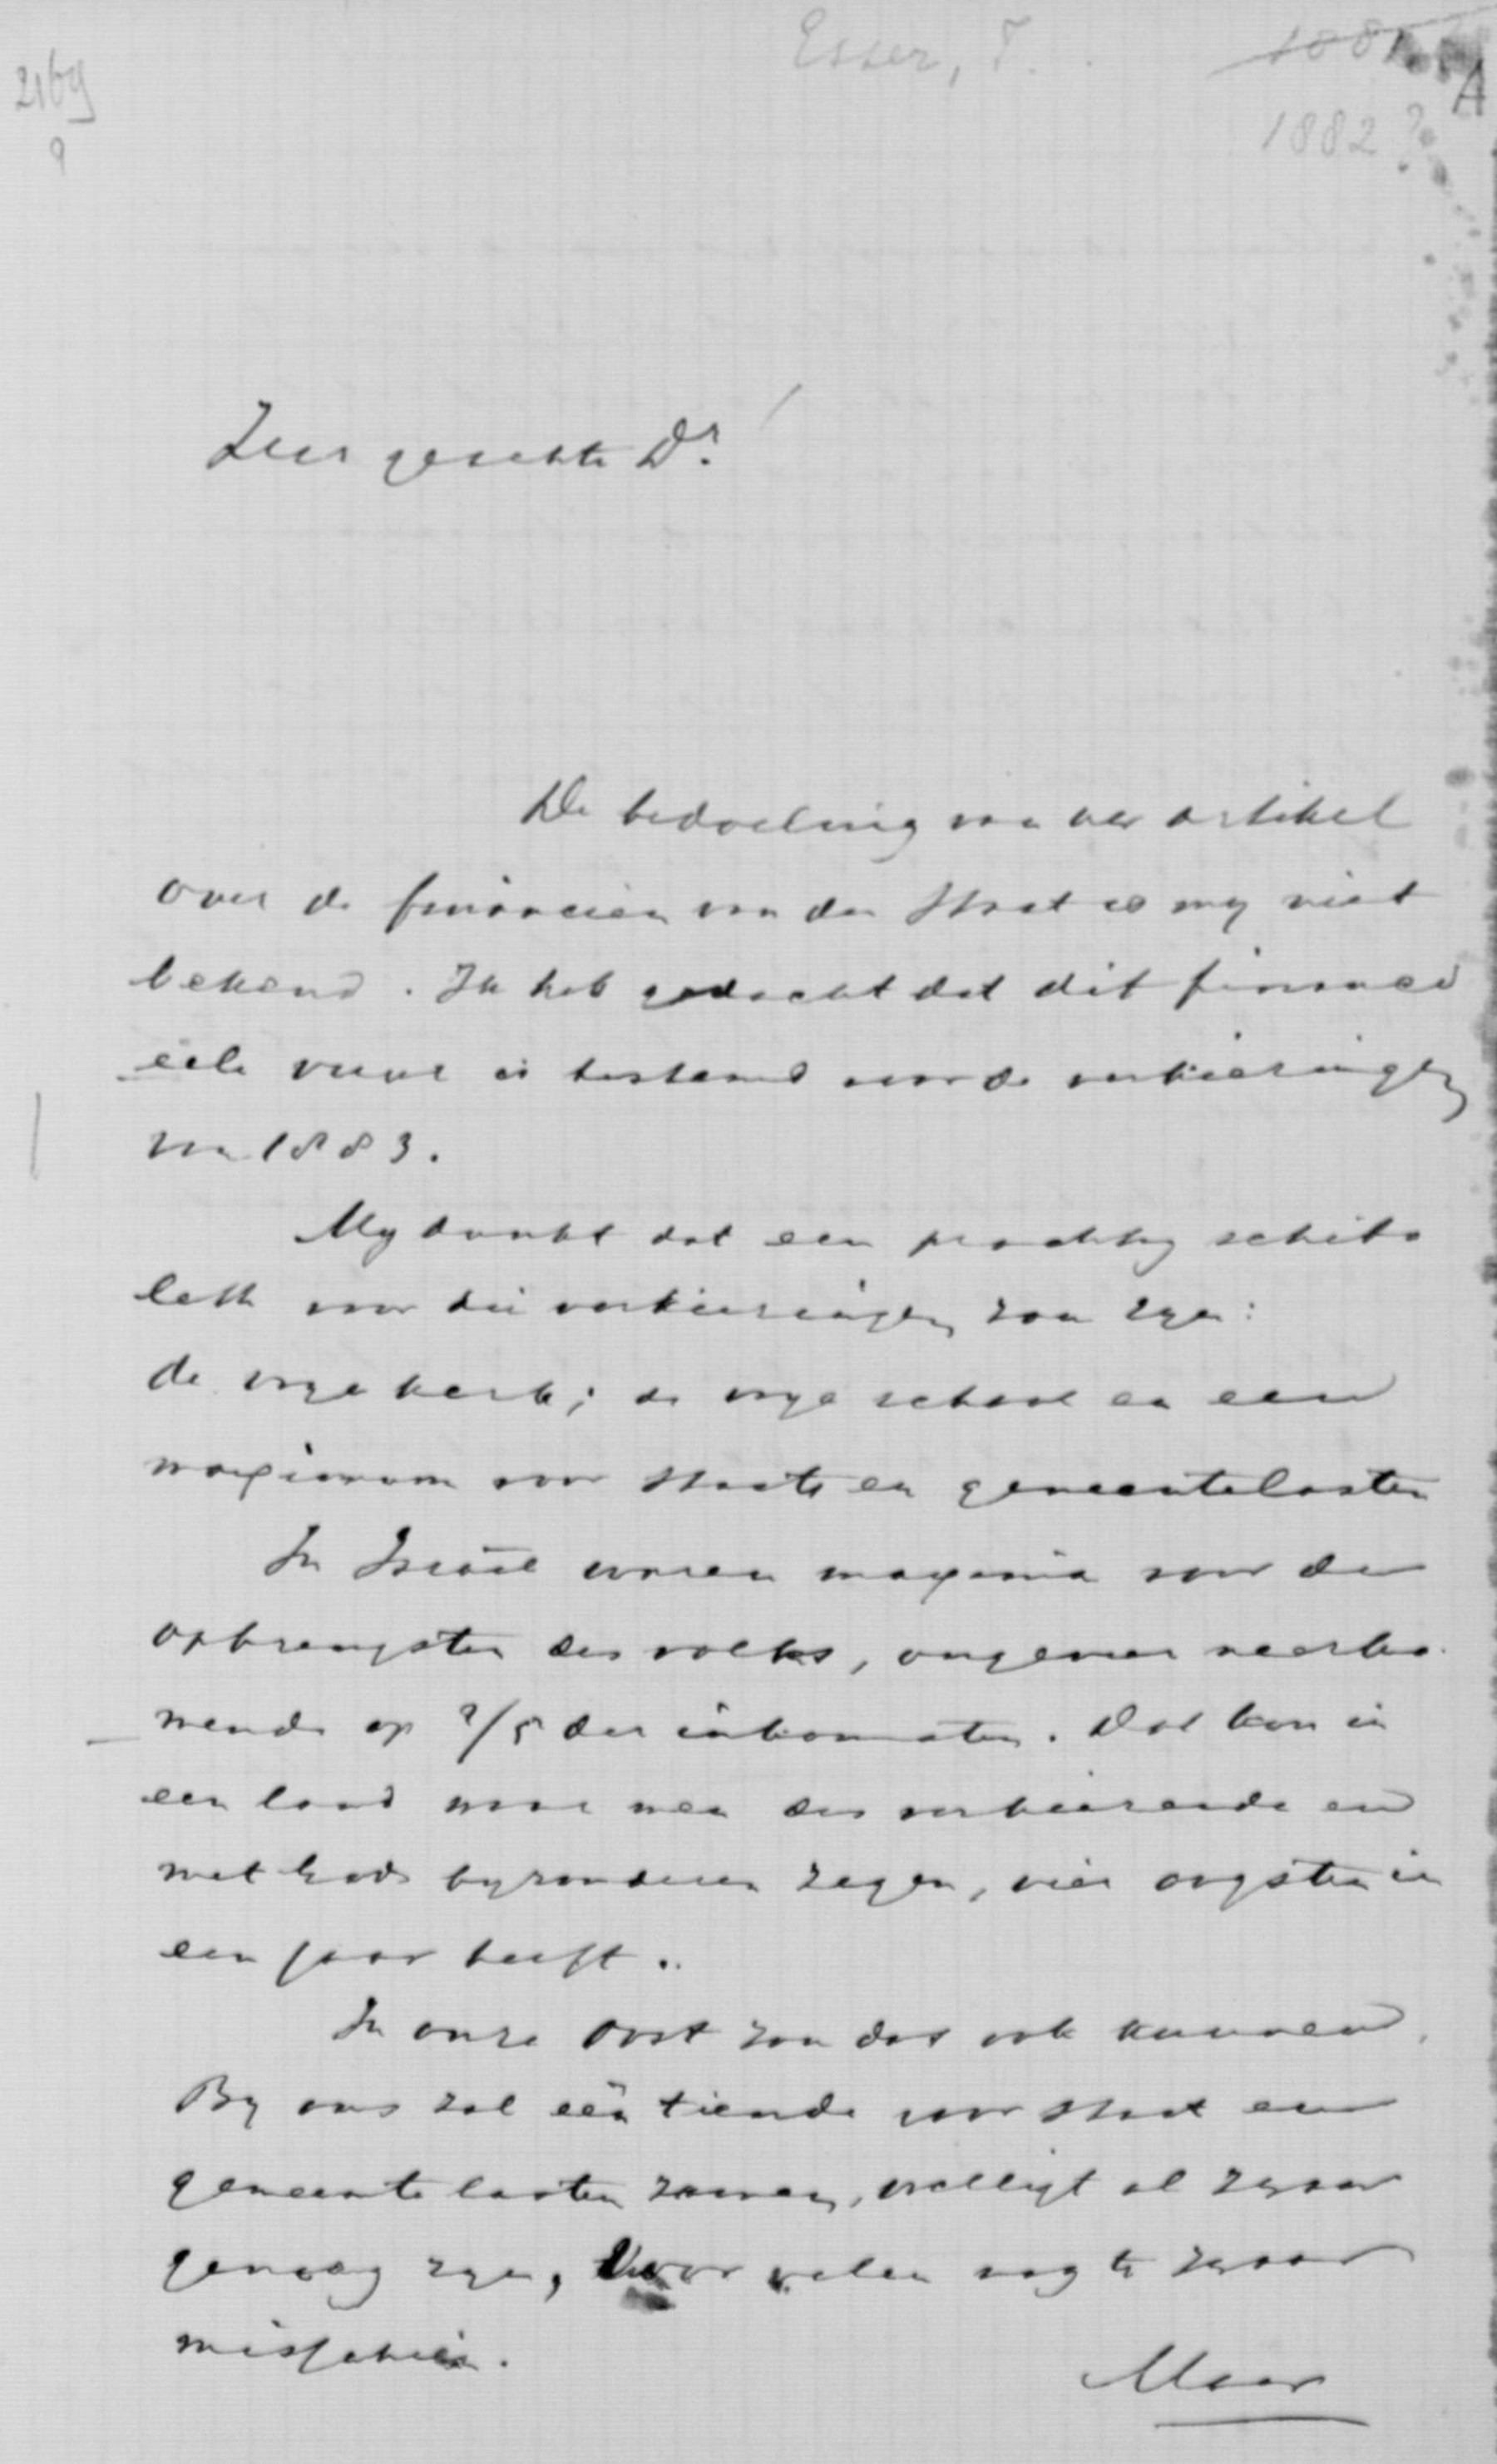 Esser, I.
1882?
A
2169
9
Zeer geachte Dr!
De bedoeling van uw artikel
over de financiën van den Staat is my niet
bekend. Ik heb gedacht dat dit financi
eele vuur is bestemd voor de verkiezingen
van 1883.
My dunkt dat een prachtig schibo
leth voor die verkiezingen zou zyn:
de vrye kerk; de vrye school en een
maximum voor Staats en gemeentelasten
In Israël waren maxima voor de
opbrengsten des volks, ongeveer neerko
mende op 2/5 der inkomsten. Dat kon in
een land waar men des verkiezende en
met Gods byzonderen zegen, vier oogsten in
een jaar heeft.
In onze Oost zou dat ook kunnen.
By ons zal één tiende voor Staat en
gemeente lasten zamen, wellicht al zwaar
genoeg zyn, voor velen nog te zwaar
misschien.
Maar